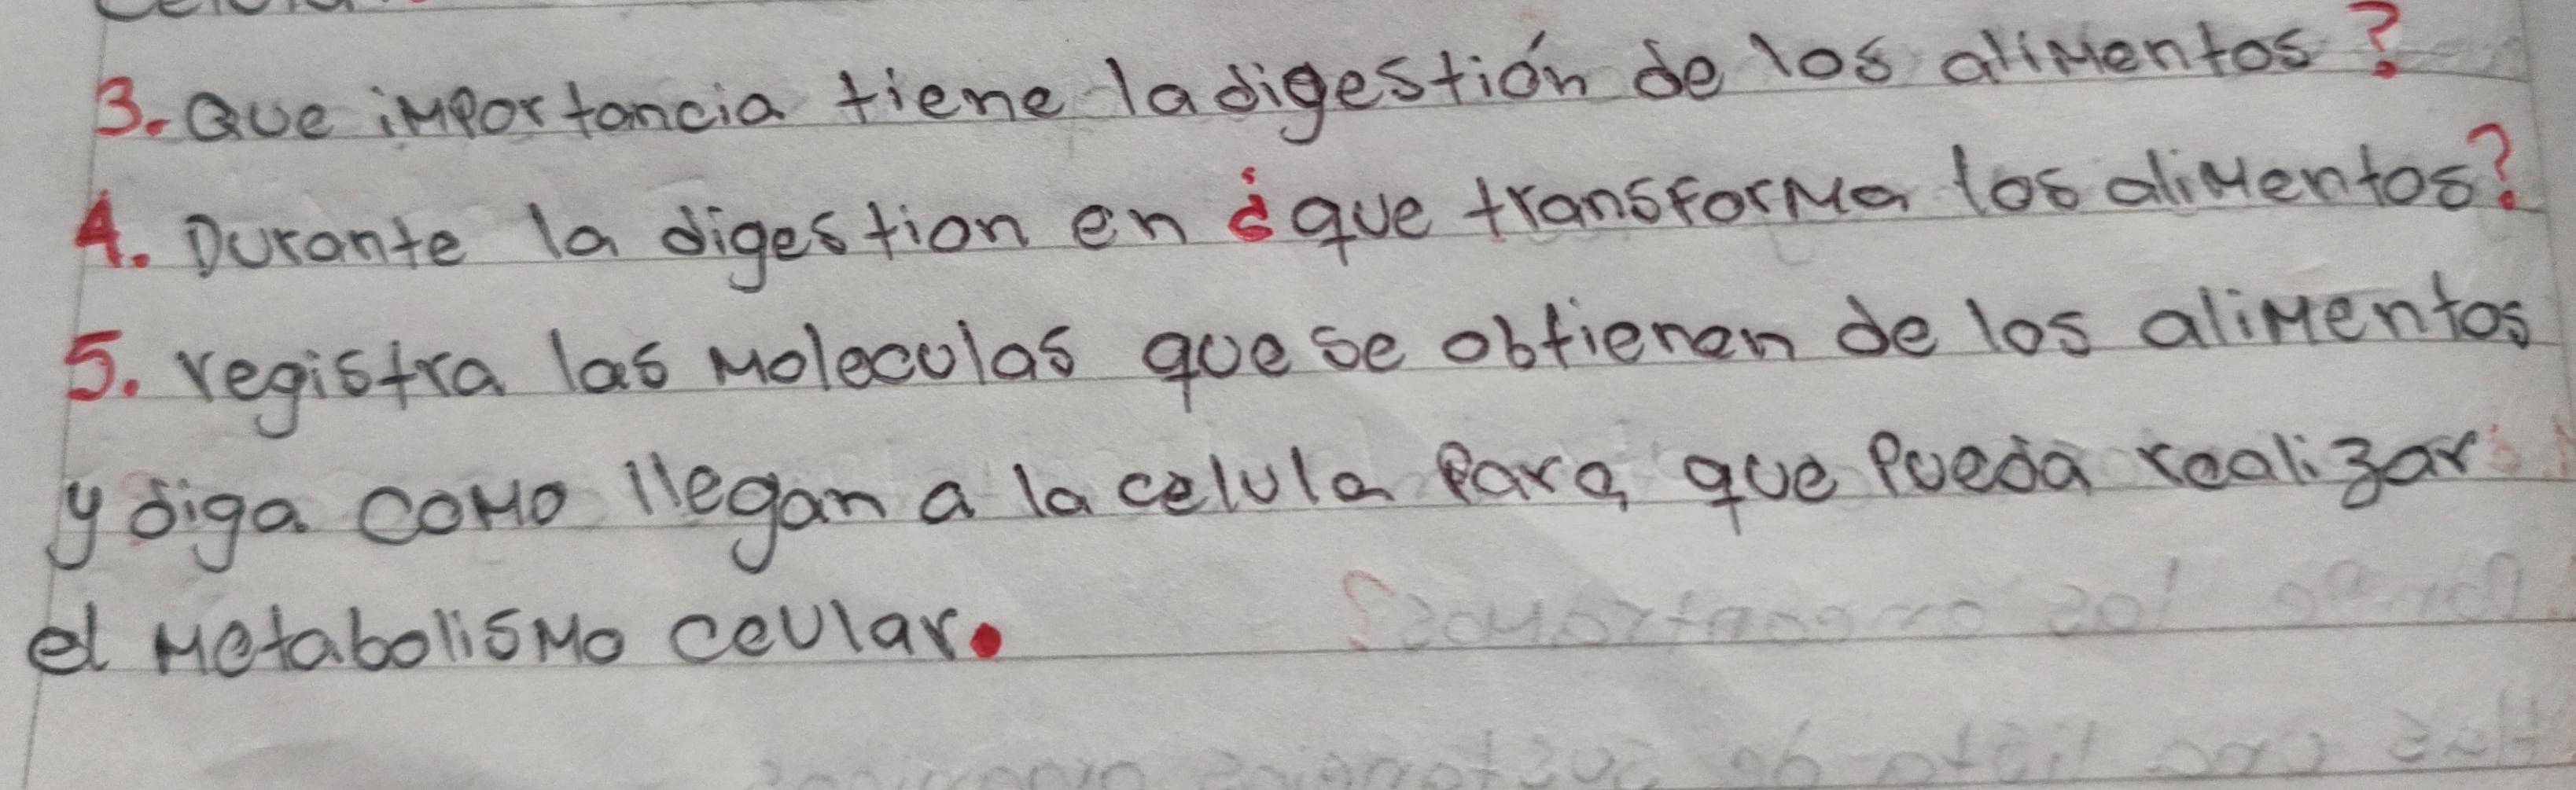 3. Que importancia tiene la digestión de los alimentos?
4. Durante la digestion en ¿que transforma los alimentos?
5. registra las moleculas que se obtienen de los alimentos
y diga como llegan a la celula para que pueda realizar
el metabolismo ceular.